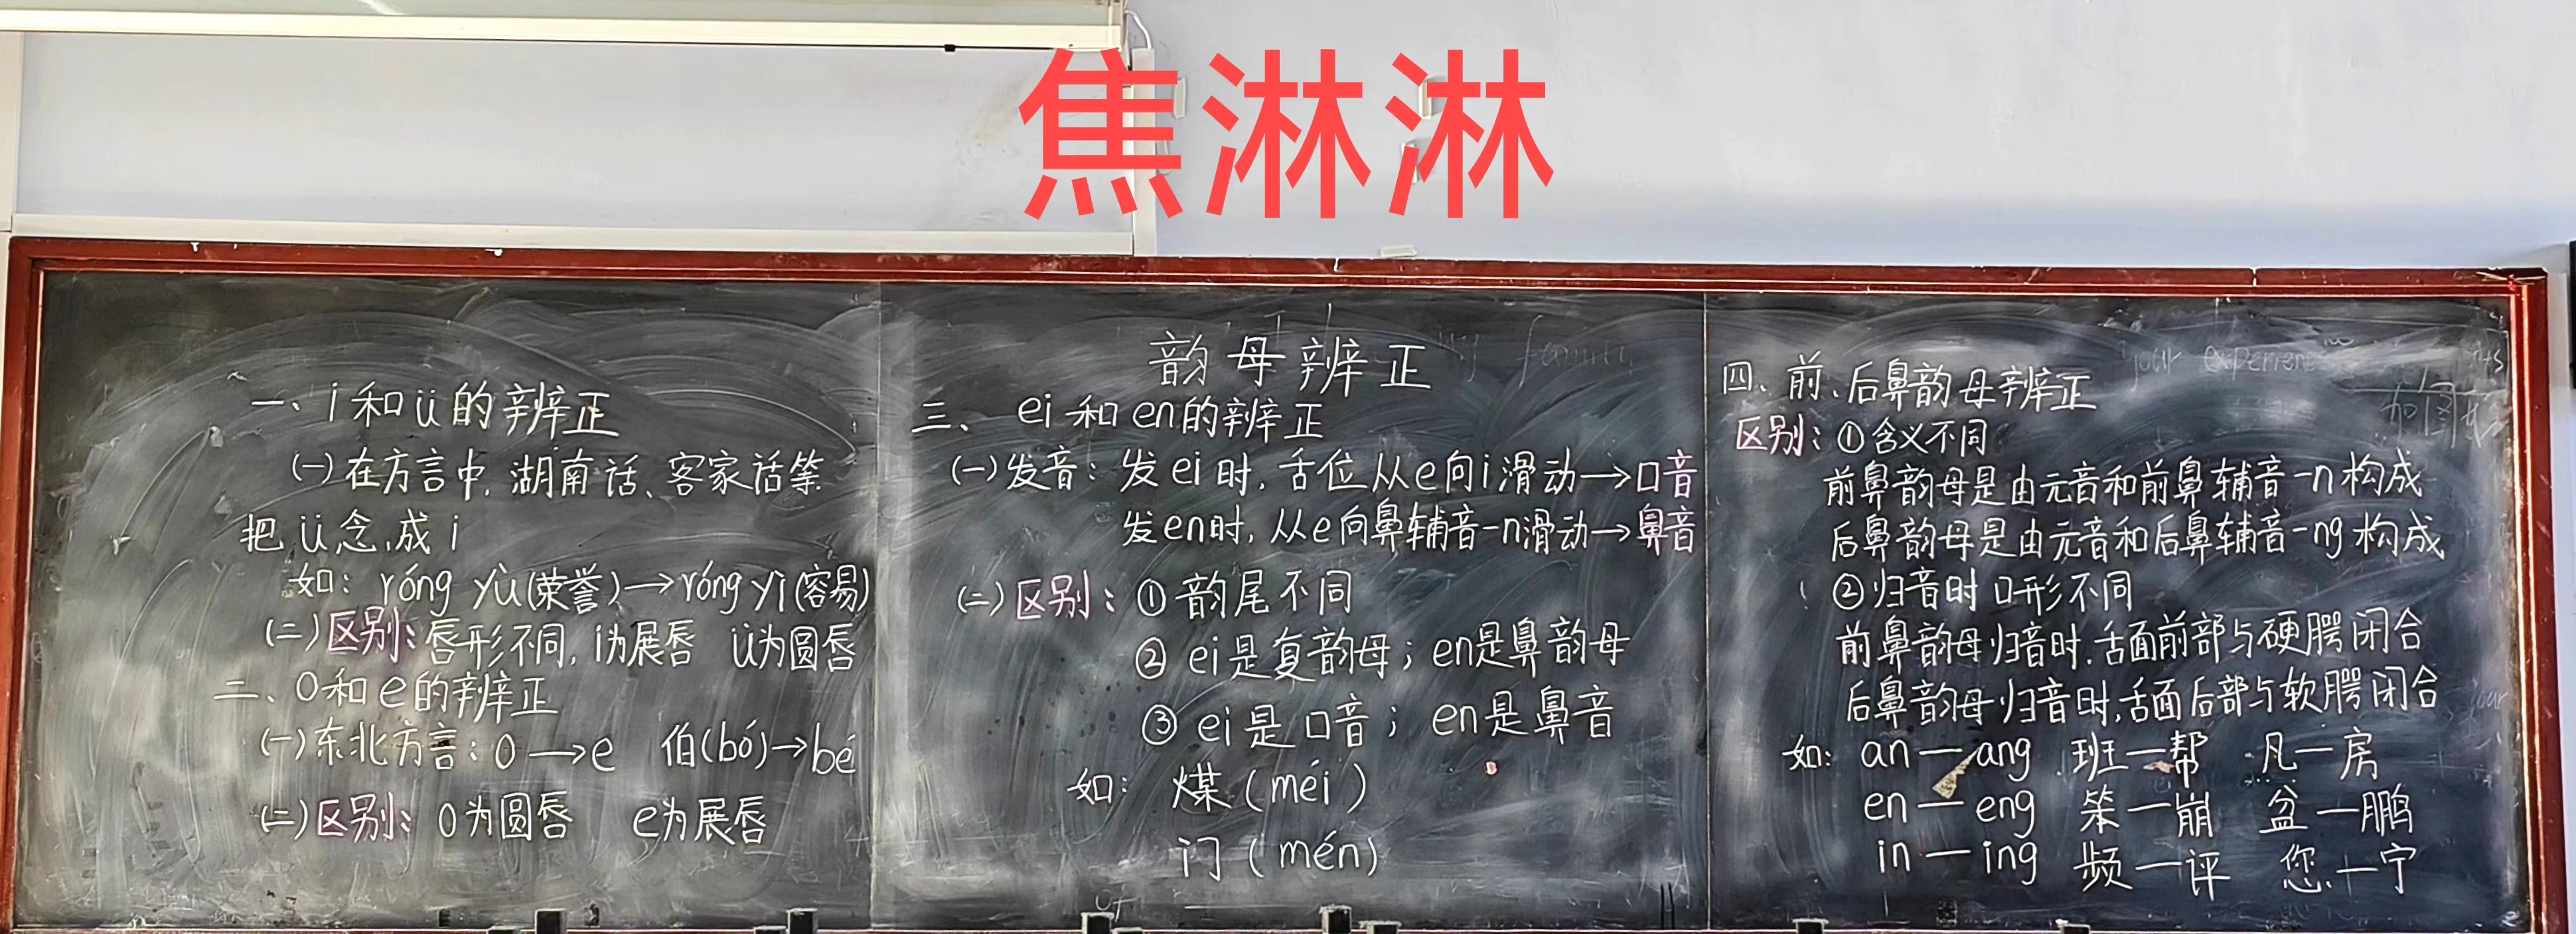 焦淋淋
韵母辨正
一、i和ü的辨正
(一)在方言中，湖南话、客家话等
把ü念成i
如：róng yù(荣誉)→róng yì(容易)
(二)区别：唇形不同，i为展唇 ü为圆唇
二、o和e的辨正
(一)东北方言：o→e 伯(bó)→bé
(二)区别：o为圆唇 e为展唇
三、ei和en的辨正
(一)发音：发ei时，舌位从e向i滑动→口音
发en时，从e向鼻辅音-n滑动→鼻音
(二)区别：①韵尾不同
②ei是复韵母；en是鼻韵母
③ei是口音；en是鼻音
如：煤(méi)
门(mén)
四、前、后鼻韵母辨正
区别：①含义不同
前鼻韵母是由元音和前鼻辅音-n构成
后鼻韵母是由元音和后鼻辅音-ng构成
②归音时口形不同
前鼻韵母归音时，舌面前部与硬腭闭合
后鼻韵母归音时，舌面后部与软腭闭合
如：an—ang 班—帮 凡—房
en—eng 笨—崩 盆—鹏
in—ing 频—评 您—宁